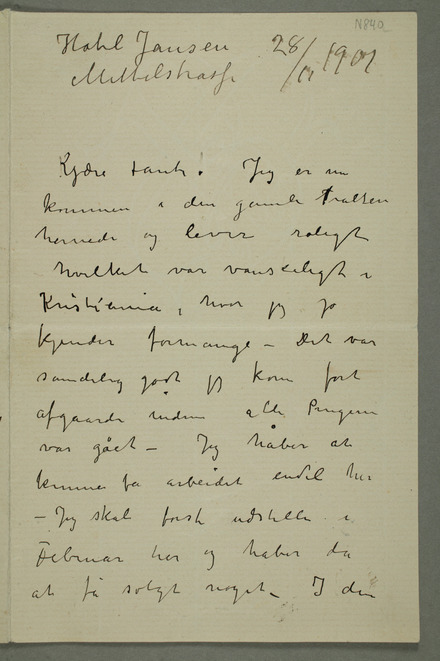 N 840
Hotel Jansen 28/11 1901
Mittelstrasse
Kjære tante! Jeg er nu
kommen i den gamle Tralten
hernede og lever roligt
hvilket var vanskeligt i
Kristiania, hvor jeg jo
kjender formange – Det var
sandelig godt jeg kom fort
afgaarde inden alle Pengene
var gået – Jeg håber at
kunne få arbeidet endel her
– Jeg skal først udstille i
Februar her og håber da
at få solgt noget – I den